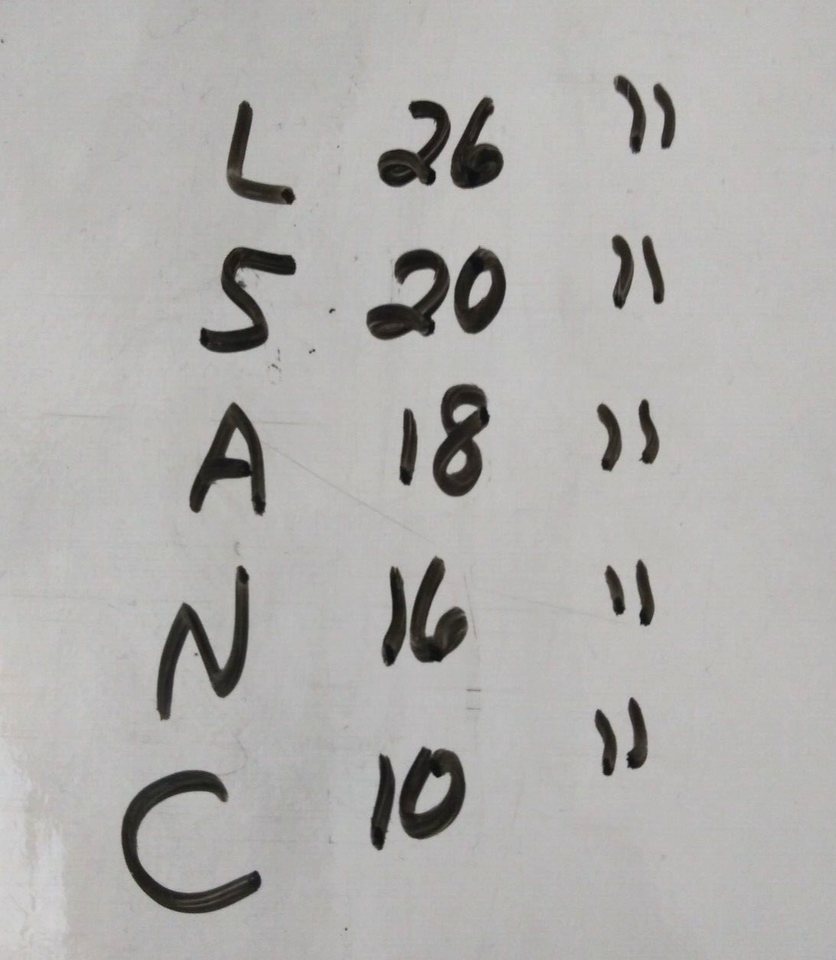 L 26 "
S 20 "
A 18 "
N 16 "
C 10 "